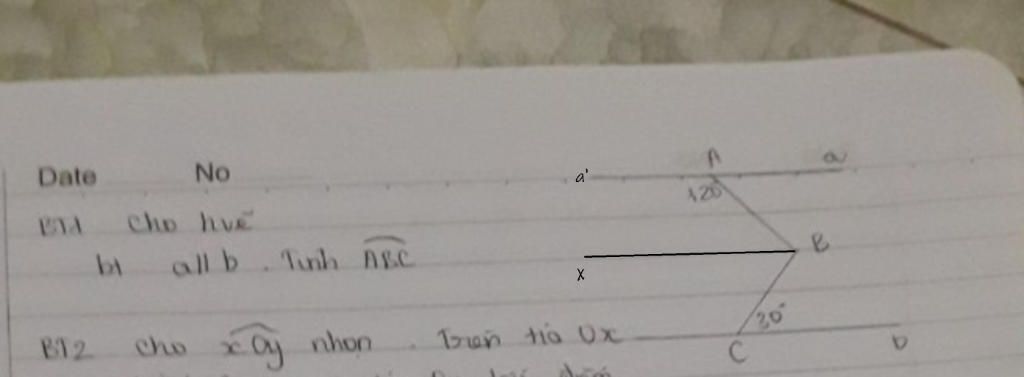 Date No
a' A a
120
BT1 Cho hvẽ
bt a//b. Tính ABC
B
x
BT2 cho xOy nhọn. Trên tia Ox
30°
C b